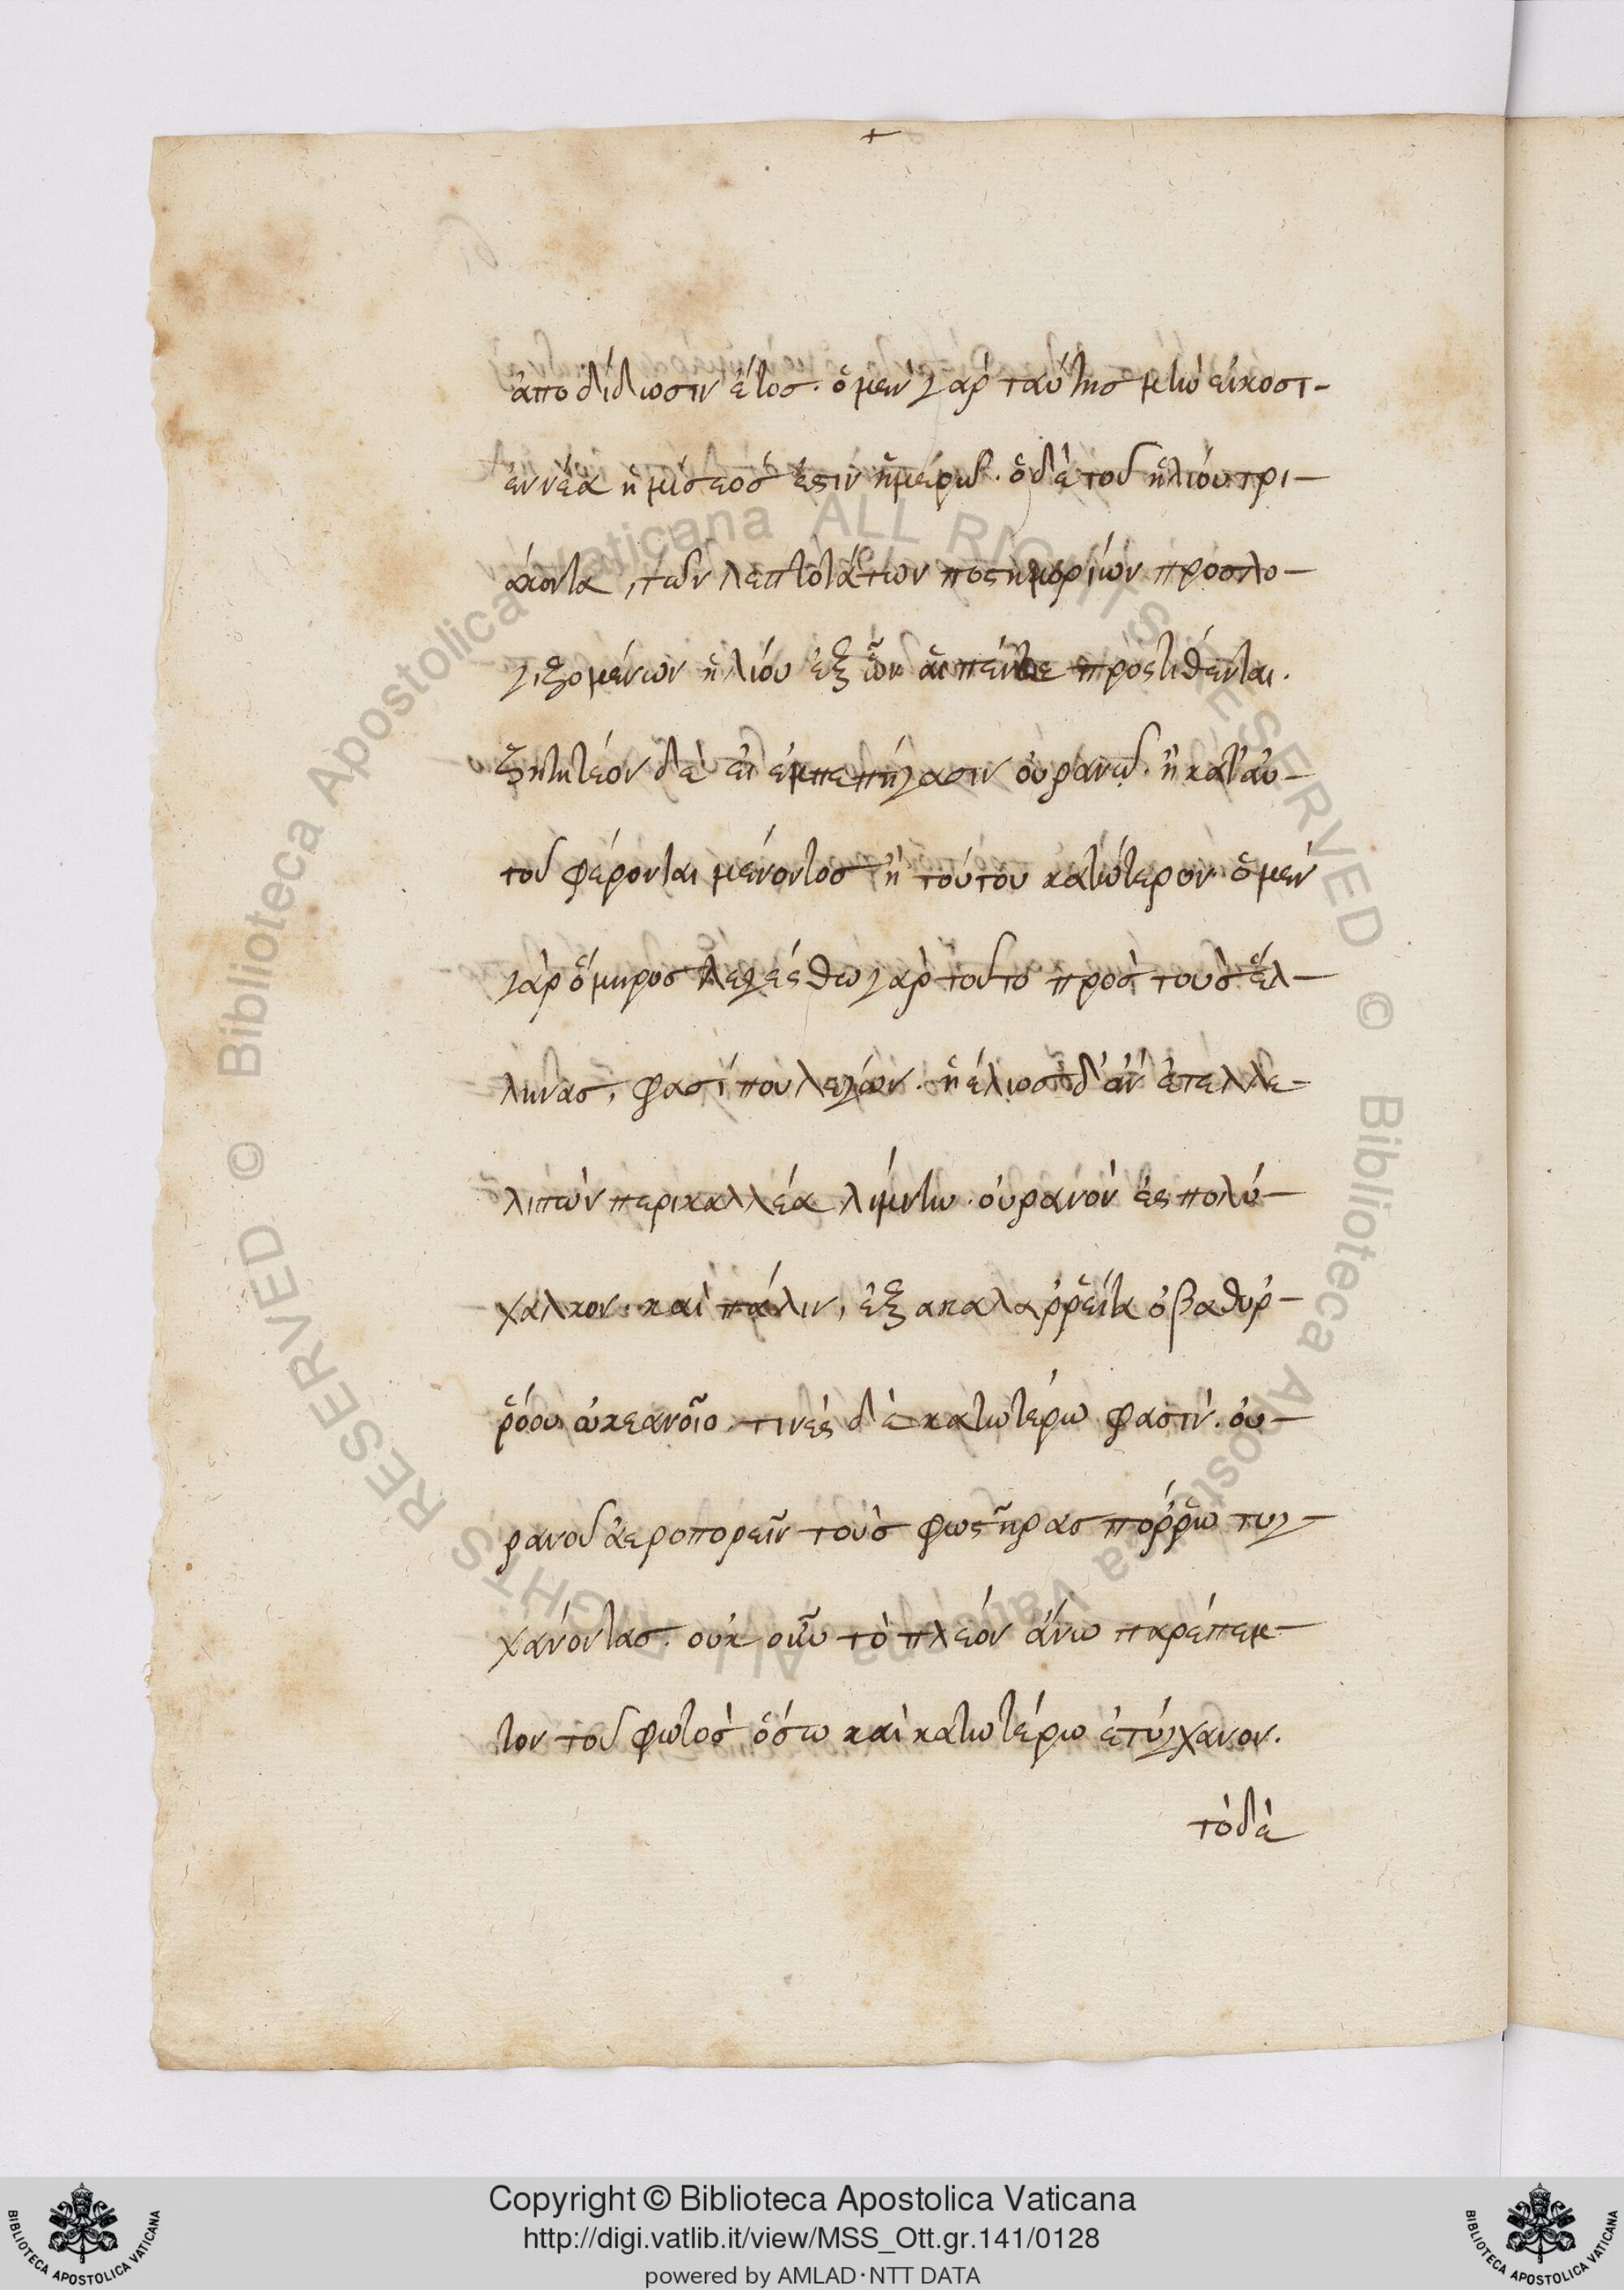 +
ἀποδίδωσιν ἔτος. ὁ μὲν γὰρ ταύτης μὴν εἰκοσι-
εννέα ἡμίσεός ἐστιν ἡμερῶν. ὁ δὲ τοῦ ἡλίου τρι-
άκοντα, τῶν λεπτοτάτων ποστημορίων προσλο-
γιζομένων ἡλίου ἐξ ὧν αἱ πέντε προστίθενται.
ζητητέον δὲ εἰ ἐμπεπήγασιν οὐρανῷ. ἢ κατ' αὐ-
τοῦ φέρονται μένοντος ἢ τούτου κατώτερον. ὁ μὲν
γὰρ ὅμηρος λελέχθω γὰρ τοῦτο πρὸς τοὺς ἕλ-
ληνας, φασί που λέγων. ἠέλιος δ' ἀν ἐτελλε
λιπὼν περικαλλέα λίμνην. οὐρανὸν ἐς πολύ-
χαλκον. καὶ πάλιν, ἐξ ακαλαῤῥείτα ὁ βαθυῤ-
ῥόου ὠκεανοῖο. τινὲς δὲ κατωτέρω φασὶν. οὐ-
ρανοῦ ἀεροπορεῖν τοὺς φωστῆρας πόῤῥω τυγ-
χάνοντας. οὐκ οὖν τὸ πλεόν ἄνω παρέπεμ-
πον τοῦ φωτὸς ὅσω καὶ κατωτέρω ἐτύγχανον.
τὸ δὲ
Copyright © Biblioteca Apostolica Vaticana
http://digi.vatlib.it/view/MSS_Ott.gr.141/0128
powered by AMLAD·NTT DATA
BIBLIOTECA APOSTOLICA VATICANA
BIBLIOTECA APOSTOLICA VATICANA
© Biblioteca Apostolica Vaticana ALL RIGHTS RESERVED © Biblioteca Apostolica Vaticana ALL RIGHTS RESERVED